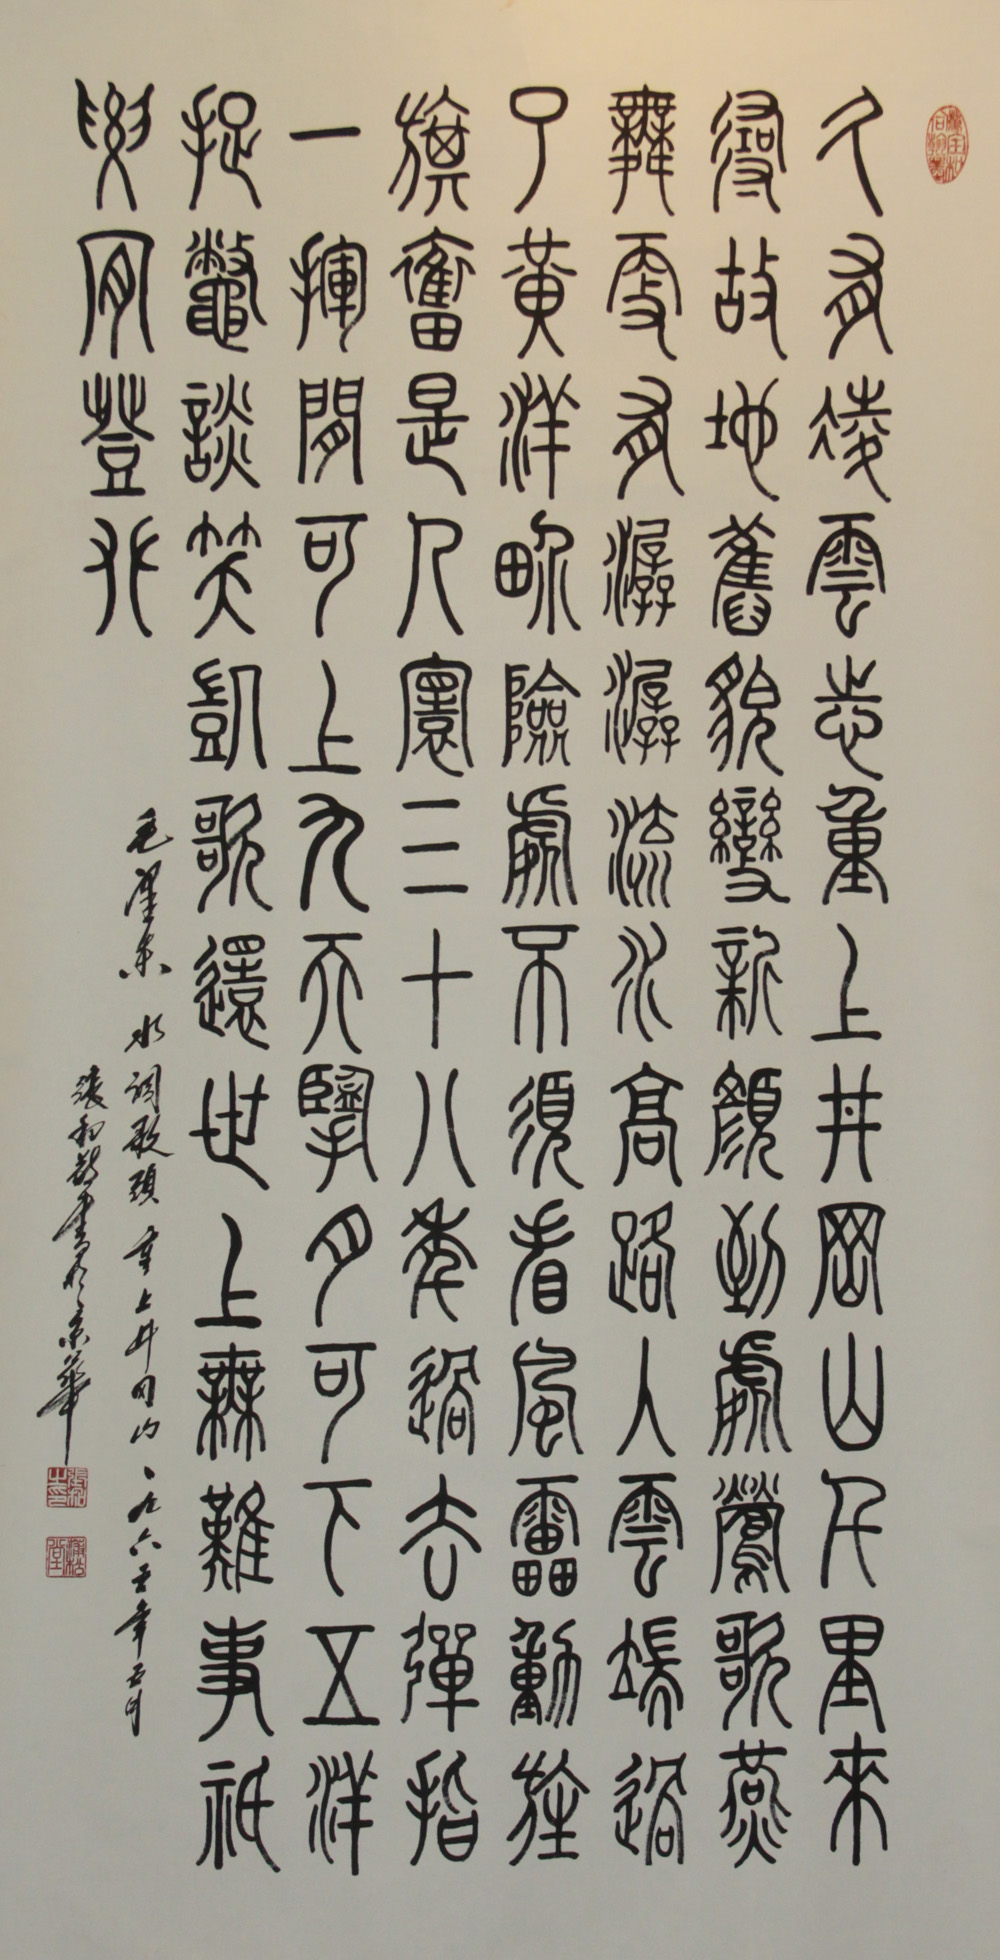 久有凌雲志重上井岡山千里來
尋故地舊貌變新顏到處鶯歌燕
舞更有潺潺流水高路入雲端過
了黃洋界險處不須看風雷動旌
旗奮是人寰三十八年過去彈指
一揮間可上九天攬月可下五洋
捉鱉談笑凱歌還世上無難事祇
要肯登攀
毛澤東 水調歌頭 重上井岡山 一九六五年五月
張和 書於京華